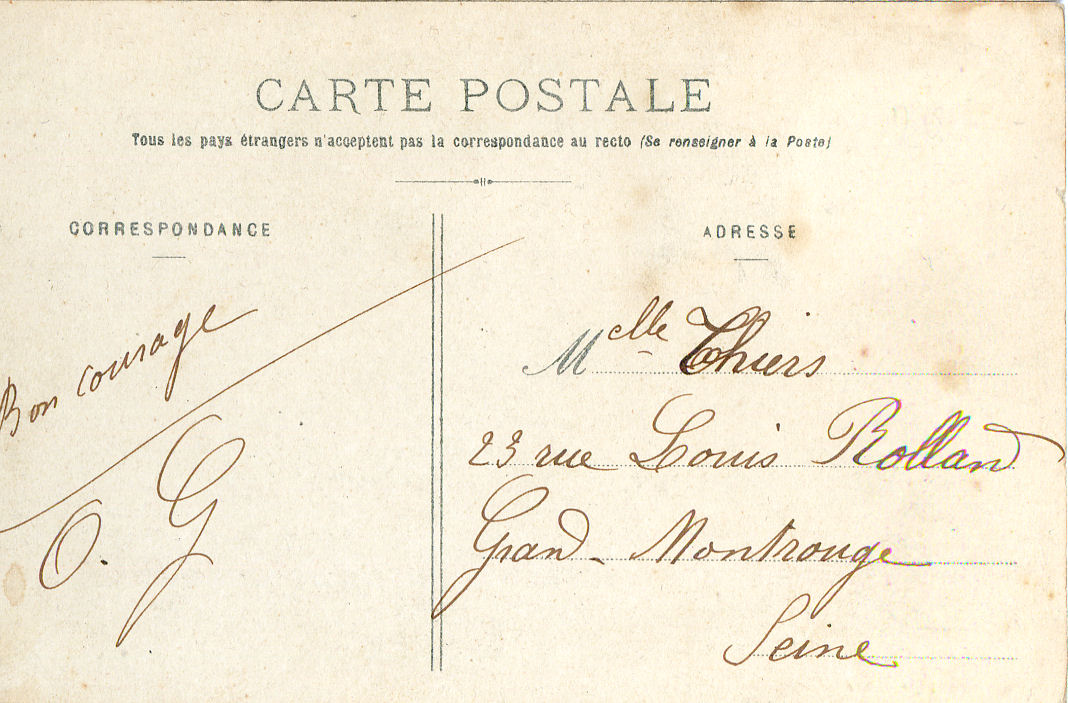 CARTE POSTALE
Tous les pays étrangers n'acceptent pas la correspondance au recto (Se renseigner à la Poste)
CORRESPONDANCE
Bon courage
O. G
ADRESSE
Melle Thiers
23 rue Louis Rolland
Grand-Montrouge
Seine